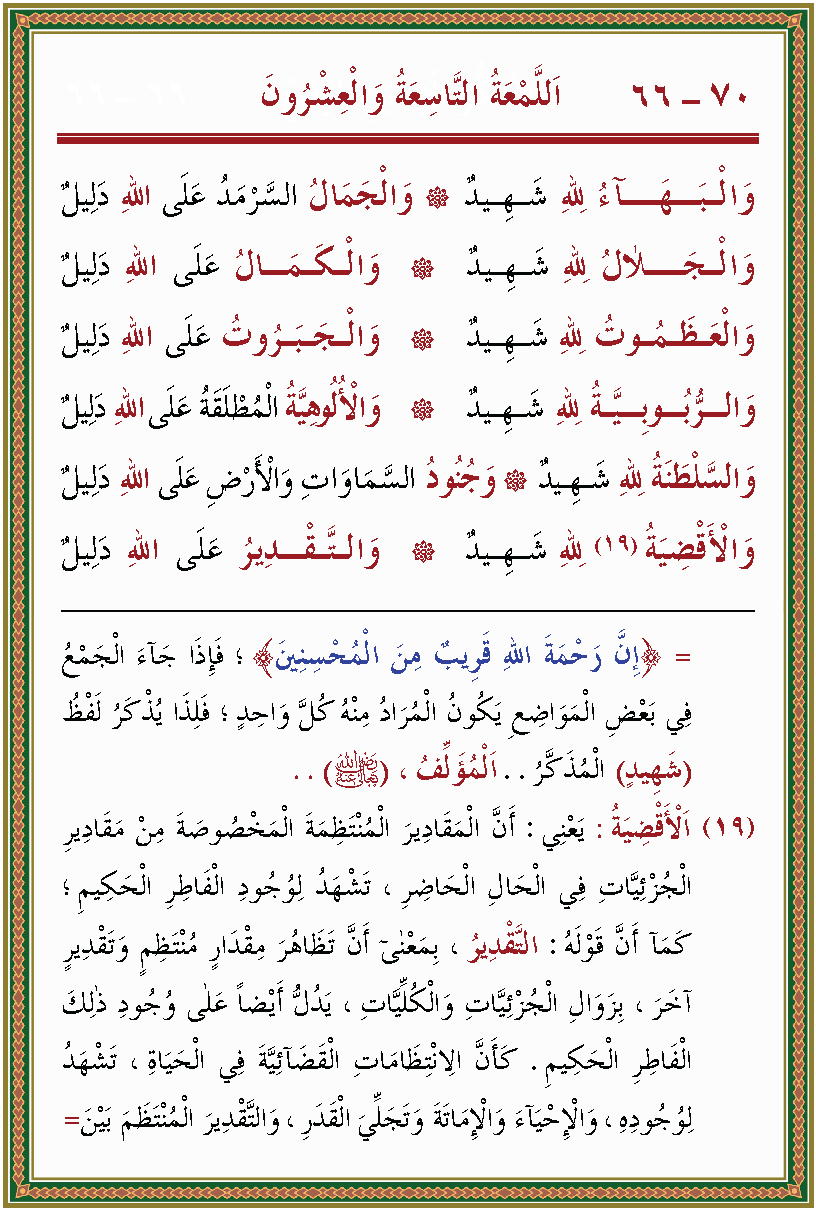 اَللَّمْعَةُ التَّاسِعَةُ وَالْعِشْرُونَ ٧٠ – ٦٦
وَالْبَهَآءُ لِلهِ شَهِيدٌ ۞ وَالْجَمَالُ السَّرْمَدُ عَلَى اللهِ دَلِيلٌ
وَالْجَلَالُ لِلهِ شَهِيدٌ ۞ وَالْكَمَالُ عَلَى اللهِ دَلِيلٌ
وَالْعَظَمُوتُ لِلهِ شَهِيدٌ ۞ وَالْجَبَرُوتُ عَلَى اللهِ دَلِيلٌ
وَالرُّبُوبِيَّةُ لِلهِ شَهِيدٌ ۞ وَالْأُلُوهِيَّةُ الْمُطْلَقَةُ عَلَى اللهِ دَلِيلٌ
وَالسَّلْطَنَةُ لِلهِ شَهِيدٌ ۞ وَجُنُودُ السَّمَاوَاتِ وَالْأَرْضِ عَلَى اللهِ دَلِيلٌ
وَالْأَقْضِيَةُ (١٩) لِلهِ شَهِيدٌ ۞ وَالتَّقْدِيرُ عَلَى اللهِ دَلِيلٌ
= ﴿إِنَّ رَحْمَةَ اللهِ قَرِيبٌ مِنَ الْمُحْسِنِينَ﴾ ؛ فَإِذَا جَآءَ الْجَمْعُ
فِي بَعْضِ الْمَوَاضِعِ يَكُونُ الْمُرَادُ مِنْهُ كُلَّ وَاحِدٍ ؛ فَلِذَا يُذْكَرُ لَفْظُ
(شَهِيدٍ) الْمُذَكَّرُ . . اَلْمُؤَلِّفُ ، (رضي الله تعالى عنه) . .
(١٩) اَلْأَقْضِيَةُ : يَعْنِي : أَنَّ الْمَقَادِيرَ الْمُنْتَظِمَةَ الْمَخْصُوصَةَ مِنْ مَقَادِيرِ
الْجُزْئِيَّاتِ فِي الْحَالِ الْحَاضِرِ ، تَشْهَدُ لِوُجُودِ الْفَاطِرِ الْحَكِيمِ ؛
كَمَآ أَنَّ قَوْلَهُ : التَّقْدِيرُ ، بِمَعْنٰىٓ أَنَّ تَظَاهُرَ مِقْدَارٍ مُنْتَظِمٍ وَتَقْدِيرٍ
آخَرَ ، بِزَوَالِ الْجُزْئِيَّاتِ وَالْكُلِّيَّاتِ ، يَدُلُّ أَيْضاً عَلٰى وُجُودِ ذٰلِكَ
الْفَاطِرِ الْحَكِيمِ . كَأَنَّ الِانْتِظَامَاتِ الْقَضَآئِيَّةَ فِي الْحَيَاةِ ، تَشْهَدُ
لِوُجُودِهِ ، وَالْإِحْيَآءَ وَالْإِمَاتَةَ وَتَجَلِّيَ الْقَدَرِ ، وَالتَّقْدِيرَ الْمُنْتَظَمَ بَيْنَ=